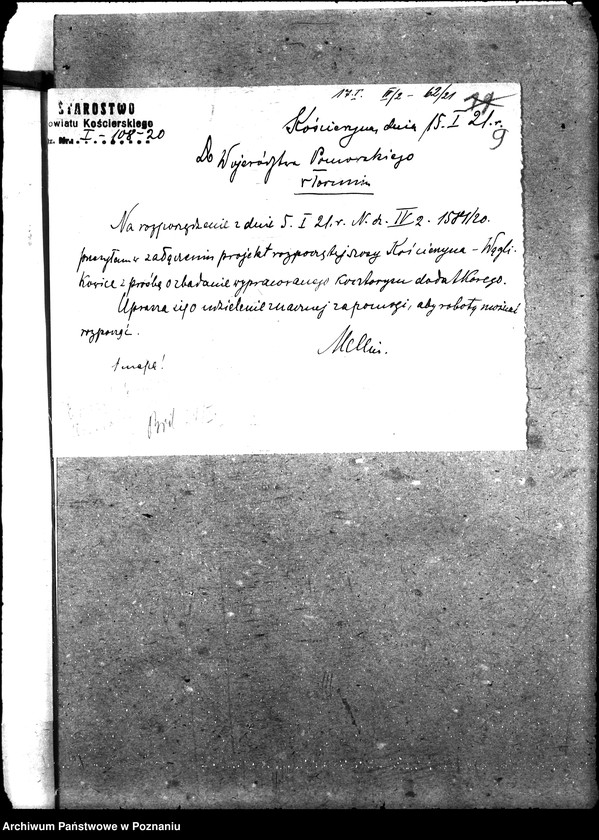 17.I. II/2 - 62/21
STAROSTWO
owiatu Kościerskiego
I - 108-20
Kościerzyna, dnia 15. I 21. r.
9
Do Województwa Pomorskiego
w Toruniu
Na rozporządzenie z dnia 5. I 21. r. N. dz. IV 2. 1581/20.
przesyłam w załączeniu projekt rozpoczętej szosy Kościerzyna - Wągli-
kowice z prośbą o zbadanie wypracowanego kosztorysu dodatkowego.
Uprasza się o udzielenie znacznej zapomogi, aby robotę można
rozpocząć.
1 mapa!
Archiwum Państwowe w Poznaniu